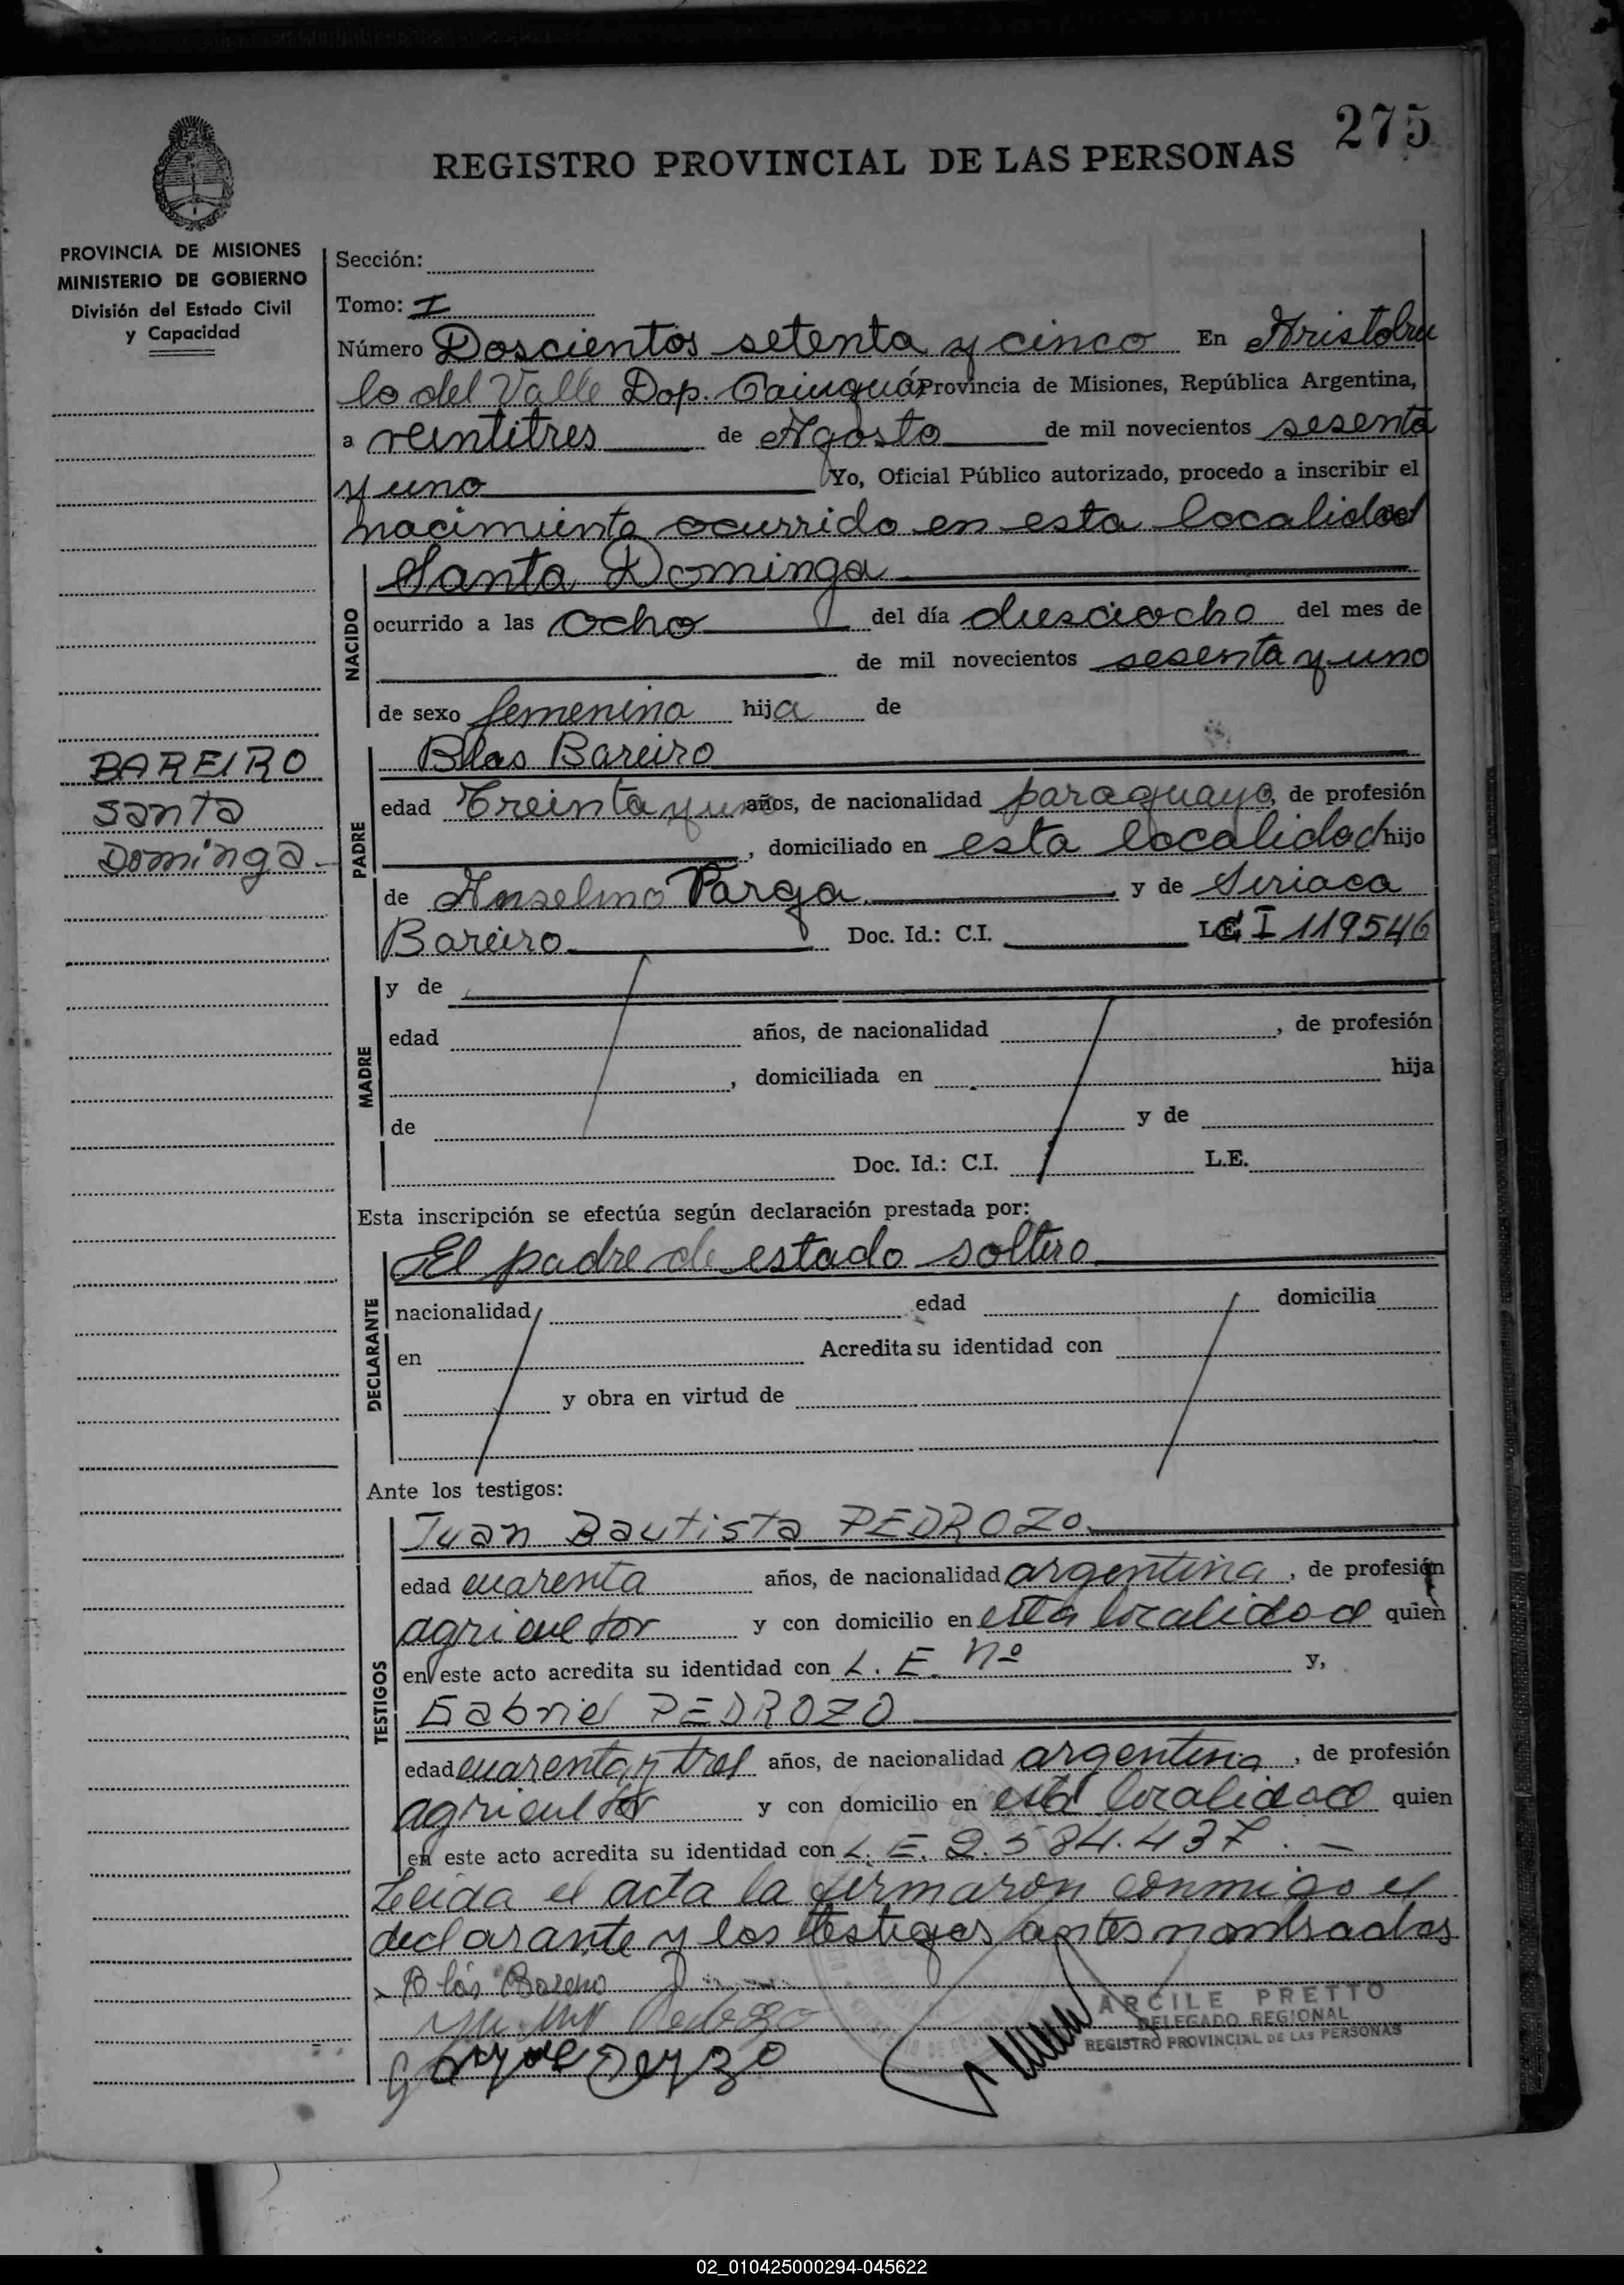 275
REGISTRO PROVINCIAL DE LAS PERSONAS
PROVINCIA DE MISIONES
MINISTERIO DE GOBIERNO
División del Estado Civil
y Capacidad
Sección:
Tomo: I
Número Doscientos setenta y cinco En Aristobu
lo del Valle Dep. Cainguás Provincia de Misiones, República Argentina,
a veintitres de Agosto de mil novecientos sesenta
y uno Yo, Oficial Público autorizado, procedo a inscribir el
nacimiento ocurrido en esta localidad
NACIDO
Santa Dominga
ocurrido a las ocho del día diesciocho del mes de
de mil novecientos sesenta y uno
de sexo femenino hija de
BAREIRO
Santa
Dominga
PADRE
Blas Bareiro
edad Treinta y uno años, de nacionalidad paraguaya, de profesión
, domiciliado en esta localidad hijo
de Anselmo Varga y de Siriaca
Bareiro Doc. Id.: C.I. C I 119546
MADRE
y de
edad años, de nacionalidad , de profesión
, domiciliada en hija
de y de
Doc. Id.: C.I. L.E.
Esta inscripción se efectúa según declaración prestada por:
DECLARANTE
El padre de estado soltero
nacionalidad edad domicilia
en Acredita su identidad con
y obra en virtud de
Ante los testigos:
TESTIGOS
Juan Bautista PEDROZO
edad cuarenta años, de nacionalidad argentina, de profesión
agricultor y con domicilio en esta localidad quien
en este acto acredita su identidad con L. E. Nº y,
Gabriel PEDROZO
edad cuarenta y tres años, de nacionalidad argentina, de profesión
agricultor y con domicilio en esta localidad quien
en este acto acredita su identidad con L. E. 2.584.437.
Leida el acta la firmaron conmigo el
declarante y los testigos antes nombrados
Blás Bareiro
ARCILE PRETTO
DELEGADO REGIONAL
REGISTRO PROVINCIAL DE LAS PERSONAS
02_010425000294-045622